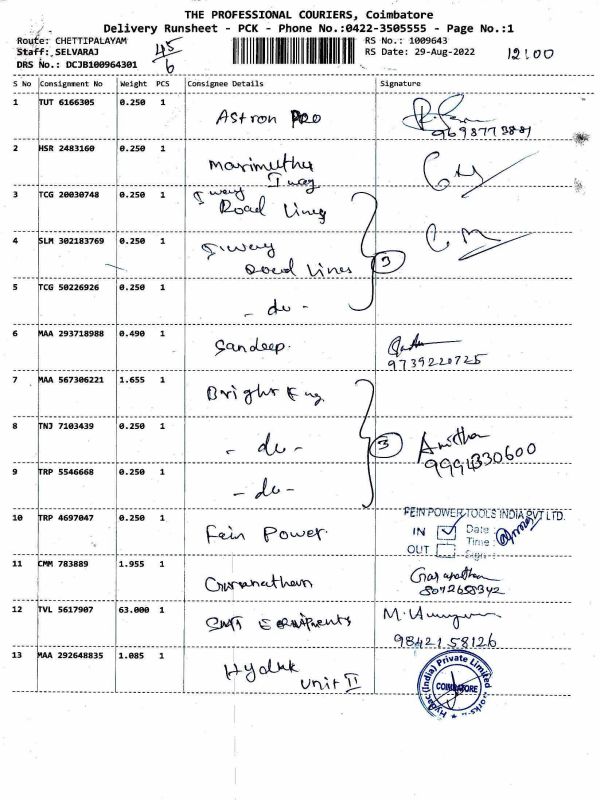 THE PROFESSIONAL COURIERS, Coimbatore
Delivery Runsheet - PCK - Phone No.:0422-3505555 - Page No.:1
Route: CHETTIPALAYAM
RS No.: 1009643
Staff: SELVARAJ
45/6
RS Date: 29-Aug-2022
12:00
DRS No.: DCJB100964301
S No Consignment No Weight PCS Consignee Details Signature
1 TUT 6166305 0.250 1 Astron PRO
9698773881
2 HSR 2483160 0.250 1 Marimuthu
I way
3 TCG 20030748 0.250 1 I way
Road Lines
4 SLM 302183769 0.250 1 I-way
Road Lines
3
5 TCG 50226926 0.250 1 - do -
6 MAA 293718988 0.490 1 Sandeep.
9739220725
7 MAA 567306221 1.655 1 Bright Eng
8 TNJ 7103439 0.250 1 - do -
3
Anitha
9994330600
9 TRP 5546668 0.250 1 - do -
10 TRP 4697047 0.250 1 Fein Power
FEIN POWER TOOLS INDIA PVT LTD.
IN Date
Time
OUT Sign
11 CMM 783889 1.955 1 Gurunathan
8072658342
12 TVL 5617907 63.000 1 SMT Equipments
98421 58126
13 MAA 292648835 1.085 1 Hydac
Unit II
Hydac (India) Private Limited
COIMBATORE